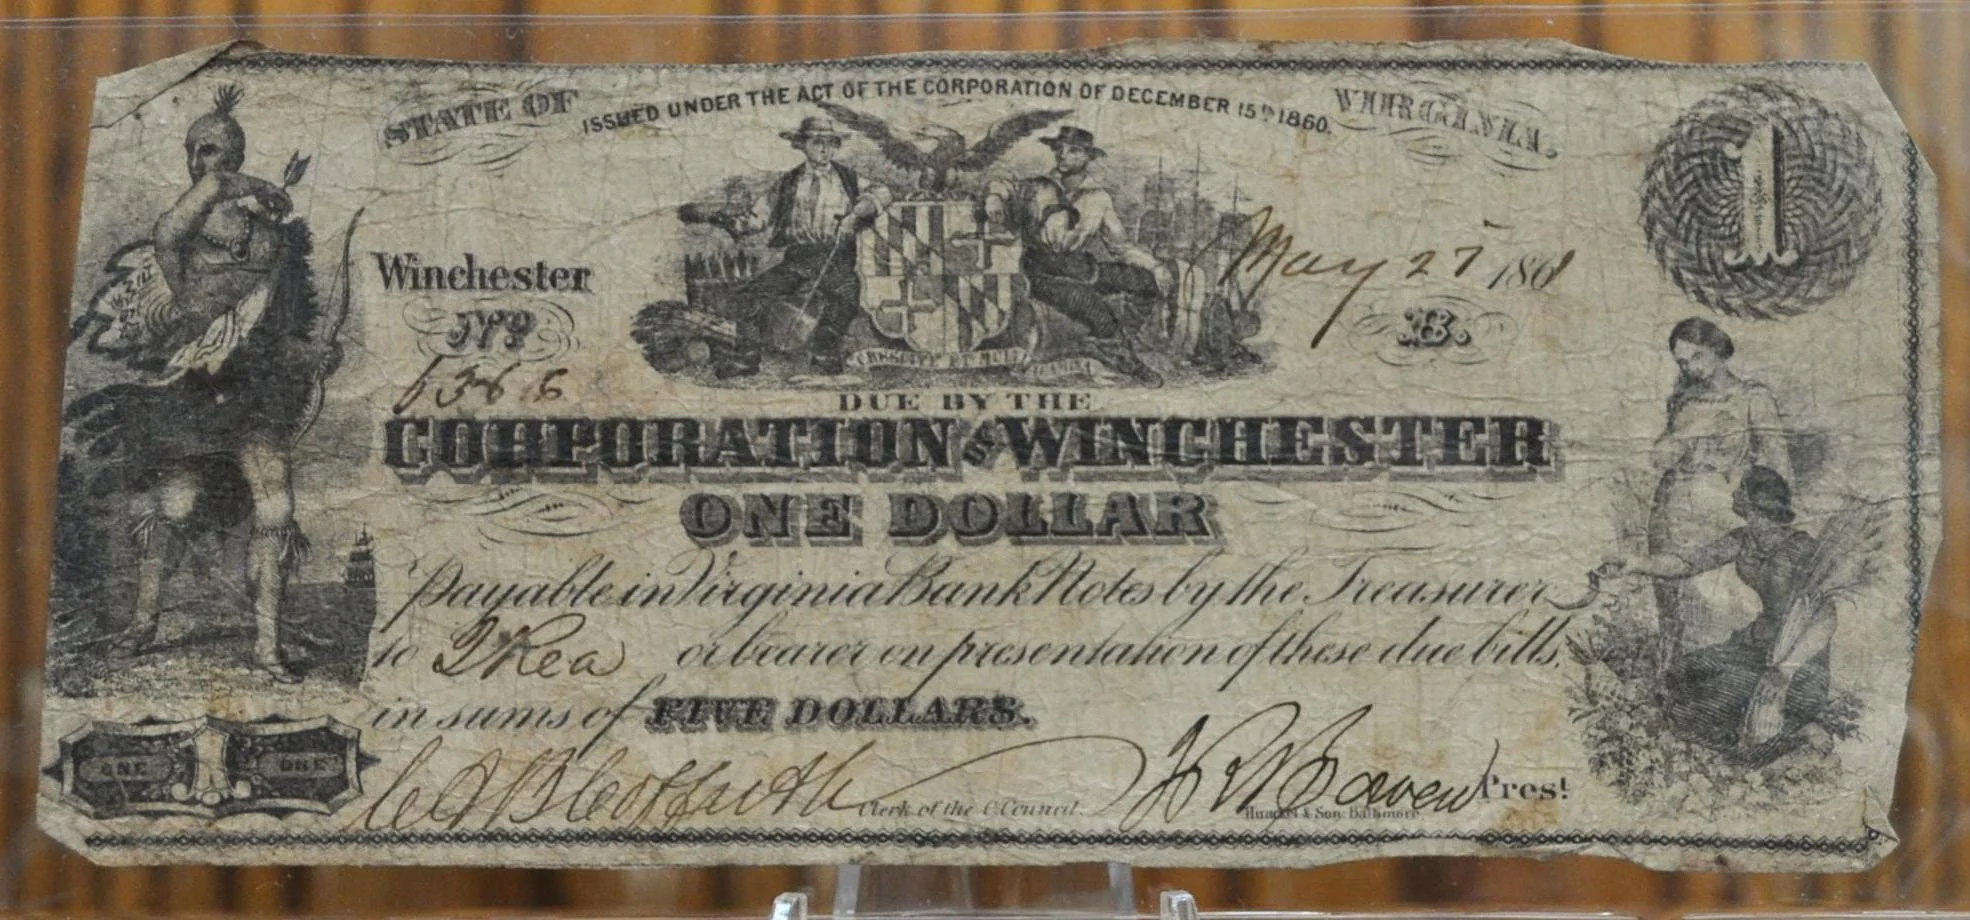 STATE OF
ISSUED UNDER THE ACT OF THE CORPORATION OF DECEMBER 15th 1860.
VIRGINIA.
1
Winchester
May 27 1861
No
B.
6366
CRESCITE ET MULTIPLICAMINI
DUE BY THE
CORPORATION OF WINCHESTER
ONE DOLLAR
Payable in Virginia Bank Notes by the Treasurer
to T Rea or bearer on presentation of these due bills,
in sums of FIVE DOLLARS.
ONE 1 ONE
Clerk of the C. Council.
Prest
& Son, Baltimore